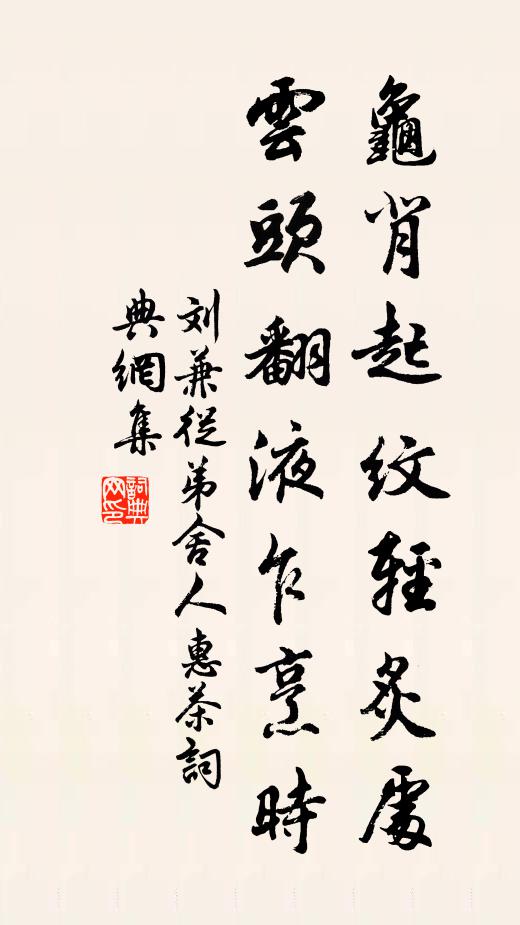 龜背起紋輕炙處
雲頭翻液乍烹時
刘兼從弟舍人惠茶詞
典網集
詞典
网印